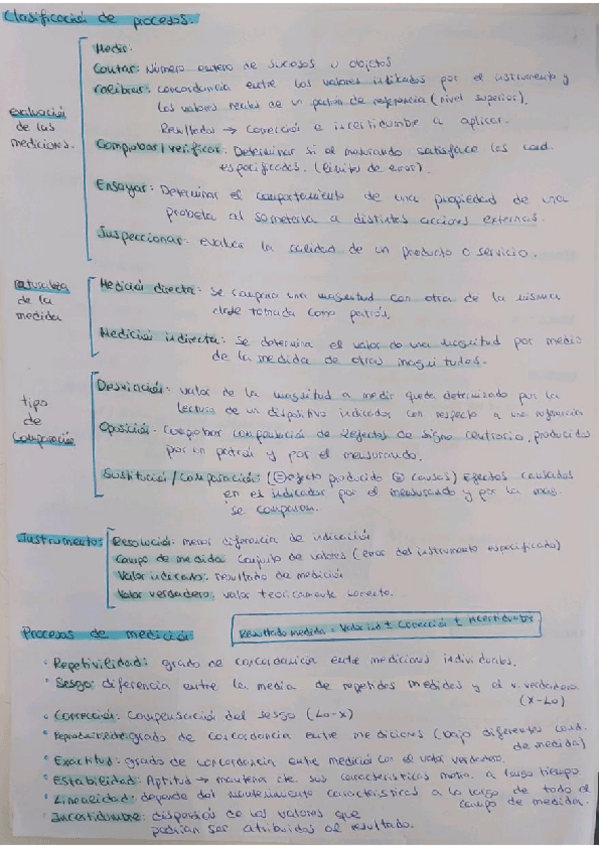 Clasificación de procesos.
Medir.
Contar: Número entero de sucesos u objetos
Calibrar: concordancia entre los valores indicados por el instrumento y
los valores reales de un patrón de referencia (nivel superior).
Resultados → Corrección e incertidumbre a aplicar.
evaluación
de las
mediciones.
Comprobar / verificar: Determinar si el mensurando satisface las cond.
especificadas. (límite de error).
Ensayar: Determinar el comportamiento de una propiedad de una
probeta al someterla a distintas acciones externas.
Inspeccionar: evalúa la calidad de un producto o servicio.
naturaleza
de la
medida
Medición directa: se compara una magnitud con otra de la misma
clase tomada como patrón.
Medición indirecta: se determina el valor de una magnitud por medio
de la medida de otras magnitudes.
tipo
de
comparación
Desviación: valor de la magnitud a medir queda determinado por la
lectura de un dispositivo indicador con respecto a una referencia
Oposición: comprobar compensación de 2 efectos de signo contrario, producidos
por un patrón y por el mensurando.
Sustitución / Comparación: (= efecto producido = causas) Efectos causados
en el indicador por el mensurando y por la
se comparan.
Instrumentos
Resolución: menor diferencia de indicación
Campo de medida: conjunto de valores (error del instrumento especificado)
Valor indicado: resultado de medición
Valor verdadero: valor teóricamente correcto.
Procesos de medición:
Resultado medida = Valor ind ± Corrección ± incertidumbre
Repetitividad: grado de concordancia entre mediciones individuales.
Sesgo: diferencia entre la media de repetidas medidas y el v. verdadero
(x-Lo)
Corrección: compensación del sesgo (Lo-x)
Reproducibilidad: grado de concordancia entre mediciones (bajo diferentes cond.
de medida)
Exactitud: grado de concordancia entre medición con el valor verdadero.
Estabilidad: Aptitud → mantener cte. sus características a largo tiempo
Linealidad: depende del mantenimiento características a lo largo de todo el
campo de medida.
Incertidumbre: dispersión de los valores que
podrían ser atribuidos al resultado.